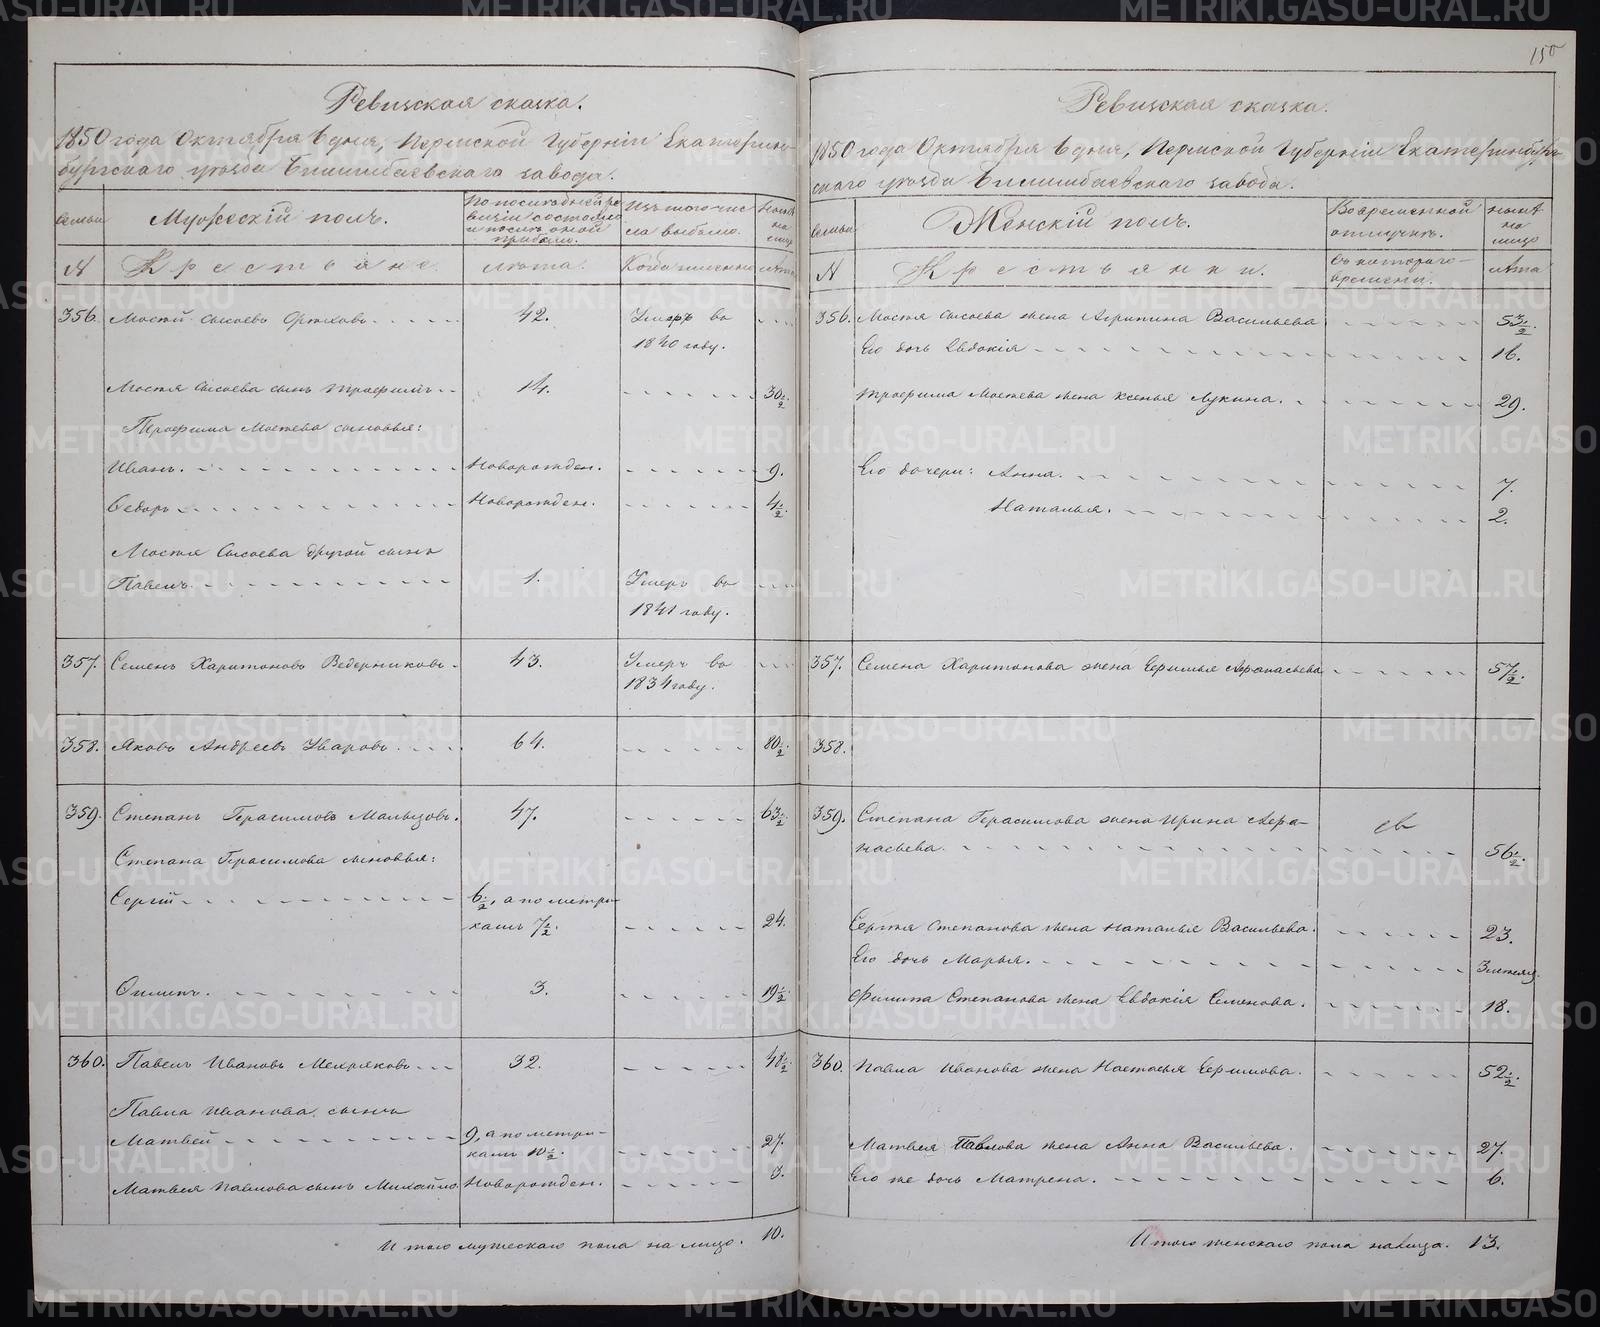 150
Ревизская сказка.
1850 года Октября 6 дня, Пермской Губерніи Екатерин-
бургскаго уѣзда Билимбаевскаго завода.
семьи
Мужескій полъ.
По последней ре
визіи состояло
и послѣ оной
прибыло.
Изъ того чис
ла выбыло.
Нынѣ
на
лицо
N
Крестьяне.
лѣта.
Когда именно
лѣта
356.
42.
Умеръ во
1840 году.
Мокея Сысоева сынъ Трофимъ
14.
30 1/2
Трофима Мокеева сыновья:
Иванъ.
Новорожден.
9.
Ѳедоръ
Новорожден.
4 1/2.
Мокея Сысоева другой сынъ
Павелъ.
1.
Умеръ во
1841 году.
357.
Семенъ Харитоновъ Ведерниковъ.
43.
Умеръ во
1834 году.
358.
Яковъ Андреевъ Уваровъ.
64.
80 1/2.
359.
Степанъ Герасимовъ Мальцовъ.
47.
63 1/2
Степана Герасимова сыновья:
Сергій
6 1/2, а по метри-
камъ 7 1/2.
24.
Филипъ.
3.
19 1/2.
360.
Павелъ Ивановъ Мехряковъ
32.
48 1/2.
Павла Иванова сынъ
Матвей
9, а по метри-
камъ 10 1/2.
27.
Матвея Павлова сынъ Михайло
Новорожден.
Итого мужескаго пола на лицо.
10.
Ревизская сказка.
1850 года Октября 6 дня, Пермской Губерніи Екатеринбург-
скаго уѣзда Билимбаевскаго завода.
семьи
Женскій полъ.
Во временной
отлучкѣ.
нынѣ
на
лицо
N
Крестьянки.
съ котораго
времени.
лѣта
356.
Мокея Сысоева жена Агрипина Васильева
53 1/2.
Его дочь Евдокія
16.
Трофима Мокеева жена Ксенья Лукина.
29.
Его дочери: Анна.
7.
Наталья.
2.
357.
Семена Харитонова жена Ефимья Афанасьева
57 1/2.
358.
359.
Степана Герасимова жена Ирина Афа-
насьева.
56 1/2.
Сергея Степанова жена Наталья Васильева.
23.
Его дочь Марья.
Филипа Степанова жена Евдокія Семенова.
18.
360.
Павла Иванова жена Настасья Ефимова.
52 1/2.
Матвея Павлова жена Анна Васильева.
27.
Его же дочь Матрена.
6.
Итого женскаго пола налицо.
13.
METRIKI.GASO-URAL.RU